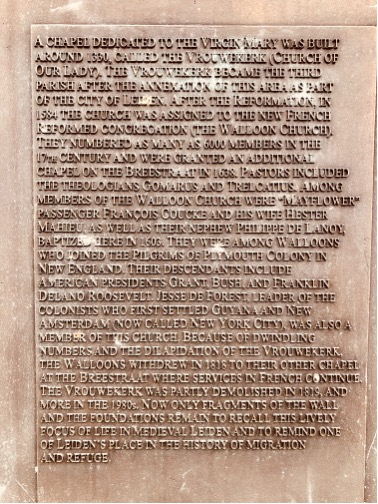 A CHAPEL DEDICATED TO THE VIRGIN MARY WAS BUILT
AROUND 1330, CALLED THE VROUWEKERK (CHURCH OF
OUR LADY). THE VROUWEKERK BECAME THE THIRD
PARISH AFTER THE ANNEXATION OF THIS AREA AS PART
OF THE CITY OF LEIDEN. AFTER THE REFORMATION, IN
1584 THE CHURCH WAS ASSIGNED TO THE NEW FRENCH
REFORMED CONGREGATION (THE WALLOON CHURCH).
THEY NUMBERED AS MANY AS 6000 MEMBERS IN THE
17TH CENTURY AND WERE GRANTED AN ADDITIONAL
CHAPEL ON THE BREESTRAAT IN 1638. PASTORS INCLUDED
THE THEOLOGIANS GOMARUS AND TRELCATIUS. AMONG
MEMBERS OF THE WALLOON CHURCH WERE "MAYFLOWER"
PASSENGER FRANÇOIS COUCKE AND HIS WIFE HESTER
MAHIEU, AS WELL AS THEIR NEPHEW PHILIPPE DE LANOY,
BAPTIZED HERE IN 1603. THEY WERE AMONG WALLOONS
WHO JOINED THE PILGRIMS OF PLYMOUTH COLONY IN
NEW ENGLAND. THEIR DESCENDANTS INCLUDE
AMERICAN PRESIDENTS GRANT, BUSH, AND FRANKLIN
DELANO ROOSEVELT. JESSE DE FOREST, LEADER OF THE
COLONISTS WHO FIRST SETTLED GUYANA AND NEW
AMSTERDAM (NOW CALLED NEW YORK CITY), WAS ALSO A
MEMBER OF THIS CHURCH. BECAUSE OF DWINDLING
NUMBERS AND THE DILAPIDATION OF THE VROUWEKERK,
THE WALLOONS WITHDREW IN 1818 TO THEIR OTHER CHAPEL
AT THE BREESTRAAT, WHERE SERVICES IN FRENCH CONTINUE.
THE VROUWEKERK WAS PARTLY DEMOLISHED IN 1819, AND
MORE IN THE 1980s. NOW ONLY FRAGMENTS OF THE WALL
AND THE FOUNDATIONS REMAIN TO RECALL THIS LIVELY
FOCUS OF LIFE IN MEDIEVAL LEIDEN AND TO REMIND ONE
OF LEIDEN'S PLACE IN THE HISTORY OF MIGRATION
AND REFUGE.